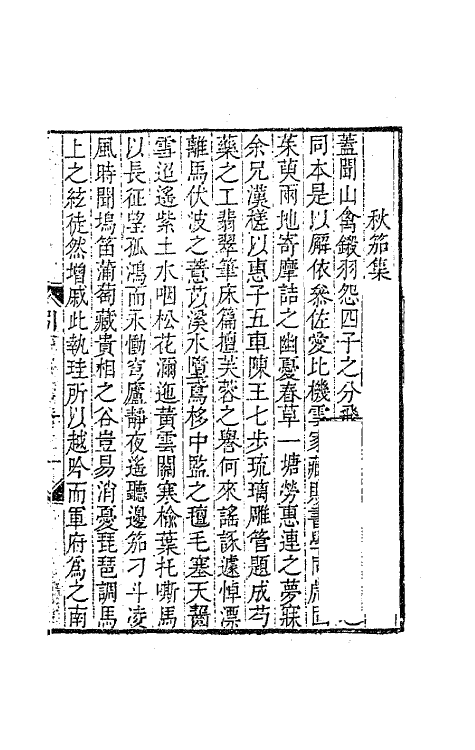 秋笳集
蓋聞山禽鎩羽怨四子之分飛
同本是以廨依叅佐愛比機雲家藏賜書學
茱萸兩地寄摩詰之幽憂春草一塘勞惠連之夢寐
余兄漢槎以惠子五車陳王七步琉璃雕管題成芍
藥之工翡翠筆床篇擅芙蓉之譽何來謠諑遽悼漂
離馬伏波之薏苡溪水墮鳶栘中監之氊毛塞天齧
雪迢遙紫土水咽松花瀰迤黃雲關寒榆葉托嘶馬
以長征望孤鴻而永慟穹廬靜夜遙聽邊笳刁斗凌
風時聞塢笛葡萄藏貴相之谷豈易消憂琵琶調馬
上之絃徒然增戚此執珪所以越吟而軍府爲之南